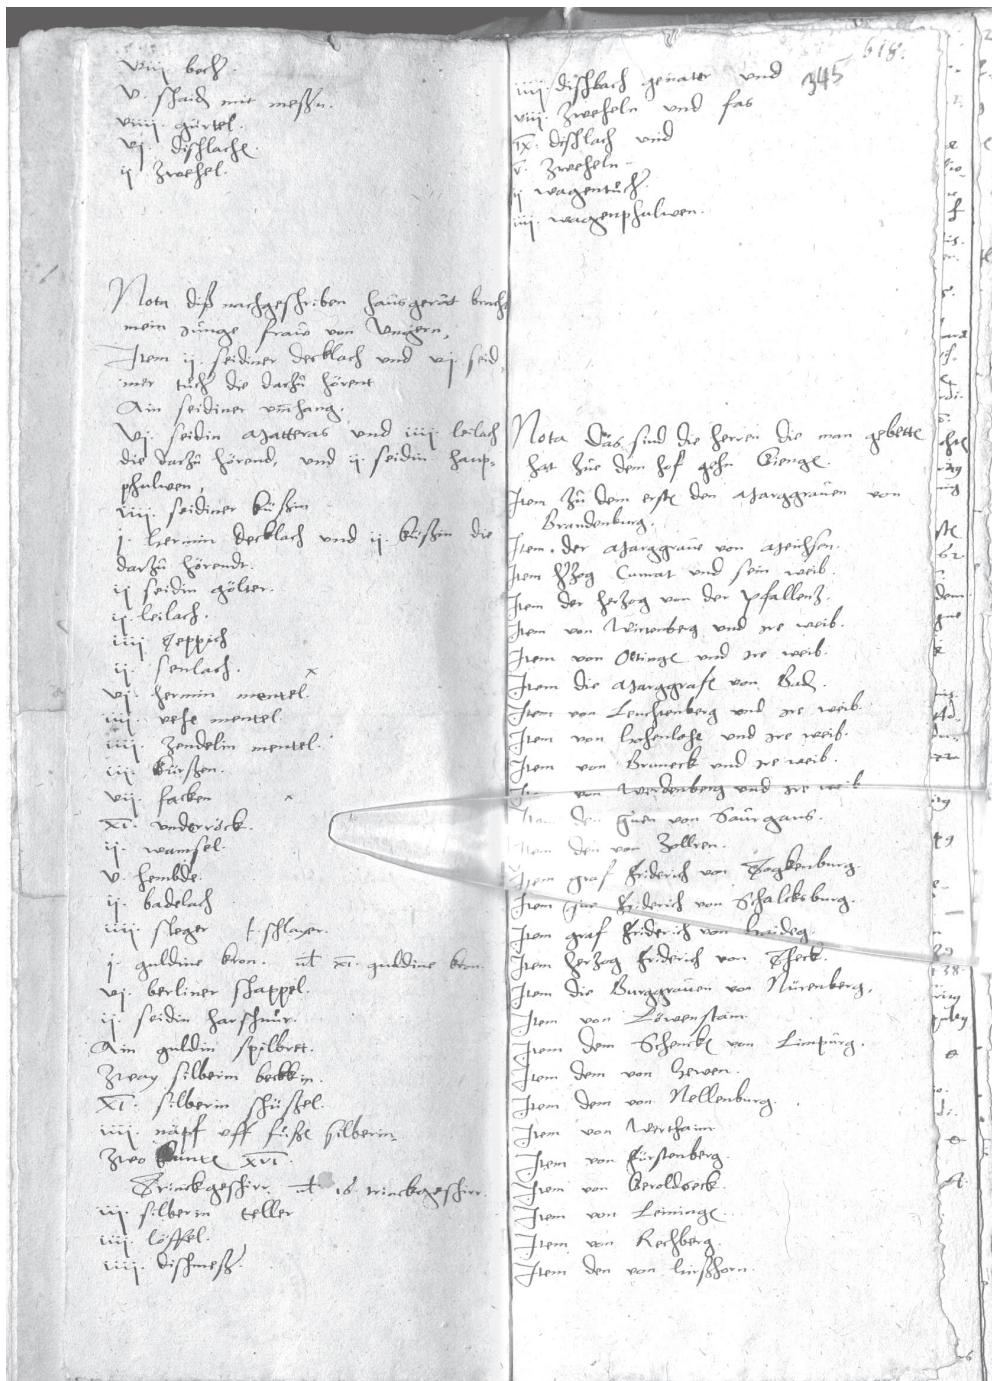 viij. bech.
v. schaid mit messern.
viiij. gürtel.
vj. dischlach.
ij zwehel.
Nota diß nachgeschriben hausgerät bracht
mein junge fraw von Ungern.
Item ij. seidiner decklach und vj. seid-
iner tuch die darzu hörent
Ain seidiner umhang.
vj. seidin Matteras und iiij leilach
die darzu hörend, und ij seidin haup-
phulwen,
iiij. seidiner küßin
j. hermin decklach und ij. küßin die
darzu hörendt.
ij seidin gölter.
ij. leilach.
iiij teppich
ij. senlach.
vj. hermin mentel.
iij. vehe mentel.
iiij. zendelin mentel.
iij. kürßen.
vij. facken
xj. underröck.
ij. wamsel.
v. hembde.
ij. badelach
iiij. sleger schlayer.
j. guldine kron. xj. guldine kron.
vj. berliner schappel.
ij. seidin harschnur.
Ain guldin spilbret.
Zway silberin beckin.
xj. silberin schüßel.
iiij. näpf uff füße silberin.
Zwo xvj.
Trinckgeschirr. 16 trinckgeschirr.
iij. silberin teller
iiij. löffel.
iiij. dischmeß.
618.
345
iiij. dischlach genater und
viij. zweheln und fas
ix. dischlach und
v. zweheln
ij wagentuch.
iiij. wagenphulwen.
Nota Das sind die herren die man gebette
hat zue dem hof gehn Gienge.
Item zu dem erste den Marggrauen von
Brandenburg.
Item. der Marggraue von Meichsen.
Item Hertzog Cunrat und sein weib.
Item der hertzog von der Pfallentz.
Item von Wirtenberg und ire weib.
Item von Oetinge und ire weib.
Item die Marggrafe von Bad.
Item von Leuchtenberg und ire weib.
Item von Hohenlohe und ire weib.
Item von Bruneck und ire weib.
Item von Werdenberg und ire weib
Item den von Saurgans.
Item den von Zollren.
Item graf Friderich von Togkenburg.
Item Friderich von Schalcksburg.
Item graf Friderich von Haideg.
Item hertzog Friderich von Theck.
Item die Burggrauen von Nürenberg.
Item von Löwenstain.
Item dem Schencke von Limpurg.
Item dem von Hewen.
Item dem von Nellenburg.
Item von Werthaim
Item von Fürstenberg.
Item von Geroldseck.
Item von Leininge.
Item von Rechberg.
Item den von hirßhorn.